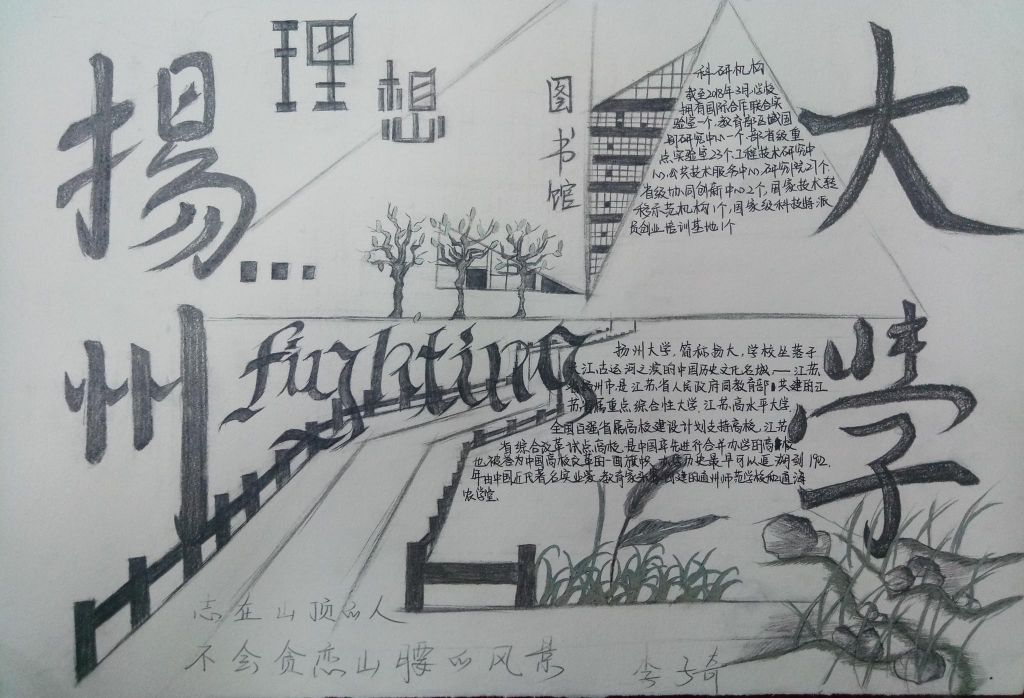 揚州
大学
理想...
图书馆
科研机构
截至2018年3月,学校
拥有国际合作联合实
验室一个,教育部区域国
别研究中心一个,部省级重
点实验室23个,工程技术研究中
心,公共技术服务中心,研究院27个,
省级协同创新中心2个,国家技术转
移示范机构1个,国家级科技特派
员创业培训基地1个
fighting
扬州大学,简称扬大,学校坐落于
长江、古运河之滨的中国历史文化名城——江苏
扬州市,是江苏省人民政府同教育部共建的江
苏省属重点综合性大学,江苏高水平大学,
全国百强省属高校建设计划支持高校,江苏
省综合改革试点高校,是中国率先进行合并办学的高校
也被誉为中国高校改革的一面旗帜,办学历史最早可以追溯到1902
年由中国近代著名实业家、教育家张謇创建的通州师范学校和通海
农学堂.
志在山顶的人
不会贪恋山腰的风景
李子奇